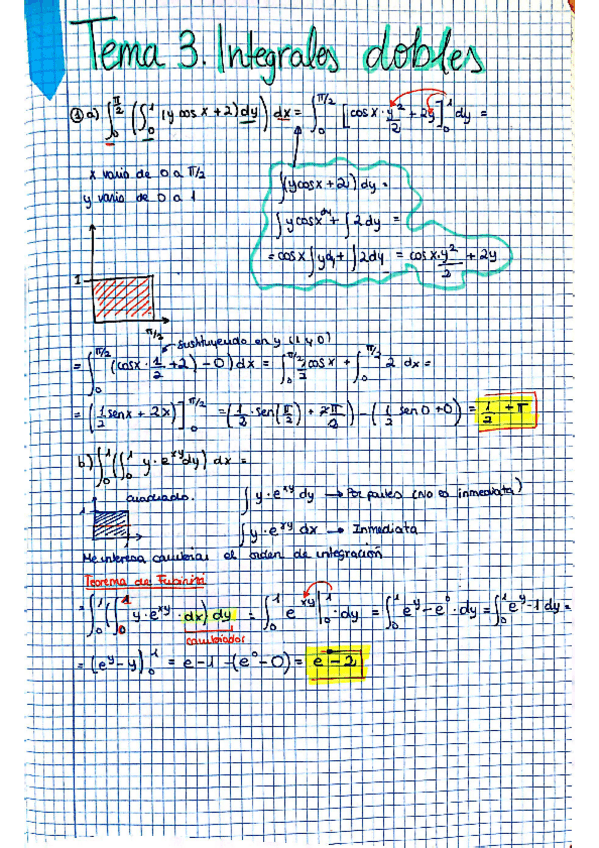 Tema 3. Integrales dobles
① a) ∫₀^{π/2} (∫₀¹ (y cos x + 2) dy) dx = ∫₀^{π/2} [cos x · y²/2 + 2y]₀¹ dy =
x varia de 0 a π/2
y varia de 0 a 1
∫(y cos x + 2) dy =
∫ y cos x dy + ∫ 2 dy =
= cos x ∫ y dy + ∫ 2 dy = cos x · y²/2 + 2y
1
π/2
Sustituyendo en y (1 y 0)
= ∫₀^{π/2} (cos x · 1/2 + 2) - 0) dx = ∫₀^{π/2} 1/2 cos x + ∫₀^{π/2} 2 dx =
= (1/2 sen x + 2x)]₀^{π/2} = (1/2 · sen(π/2) + 2π/2) - (1/2 sen 0 + 0) = 1/2 + π
b) ∫₀¹ (∫₀¹ y · e^{xy} dy) dx =
cuadrado.
∫ y · e^{xy} dy → Por partes (no es inmediata)
1
∫ y · e^{xy} dx → Inmediata
Me interesa cambiar el orden de integración
Teorema de Fubini
= ∫₀¹ (∫₀¹ y · e^{xy} · dx) dy = ∫₀¹ e^{xy} |₀¹ · dy = ∫₀¹ e^y - e⁰ · dy = ∫₀¹ e^y - 1 dy =
cambiados
= (e^y - y)₀¹ = e - 1 - (e⁰ - 0) = e - 2